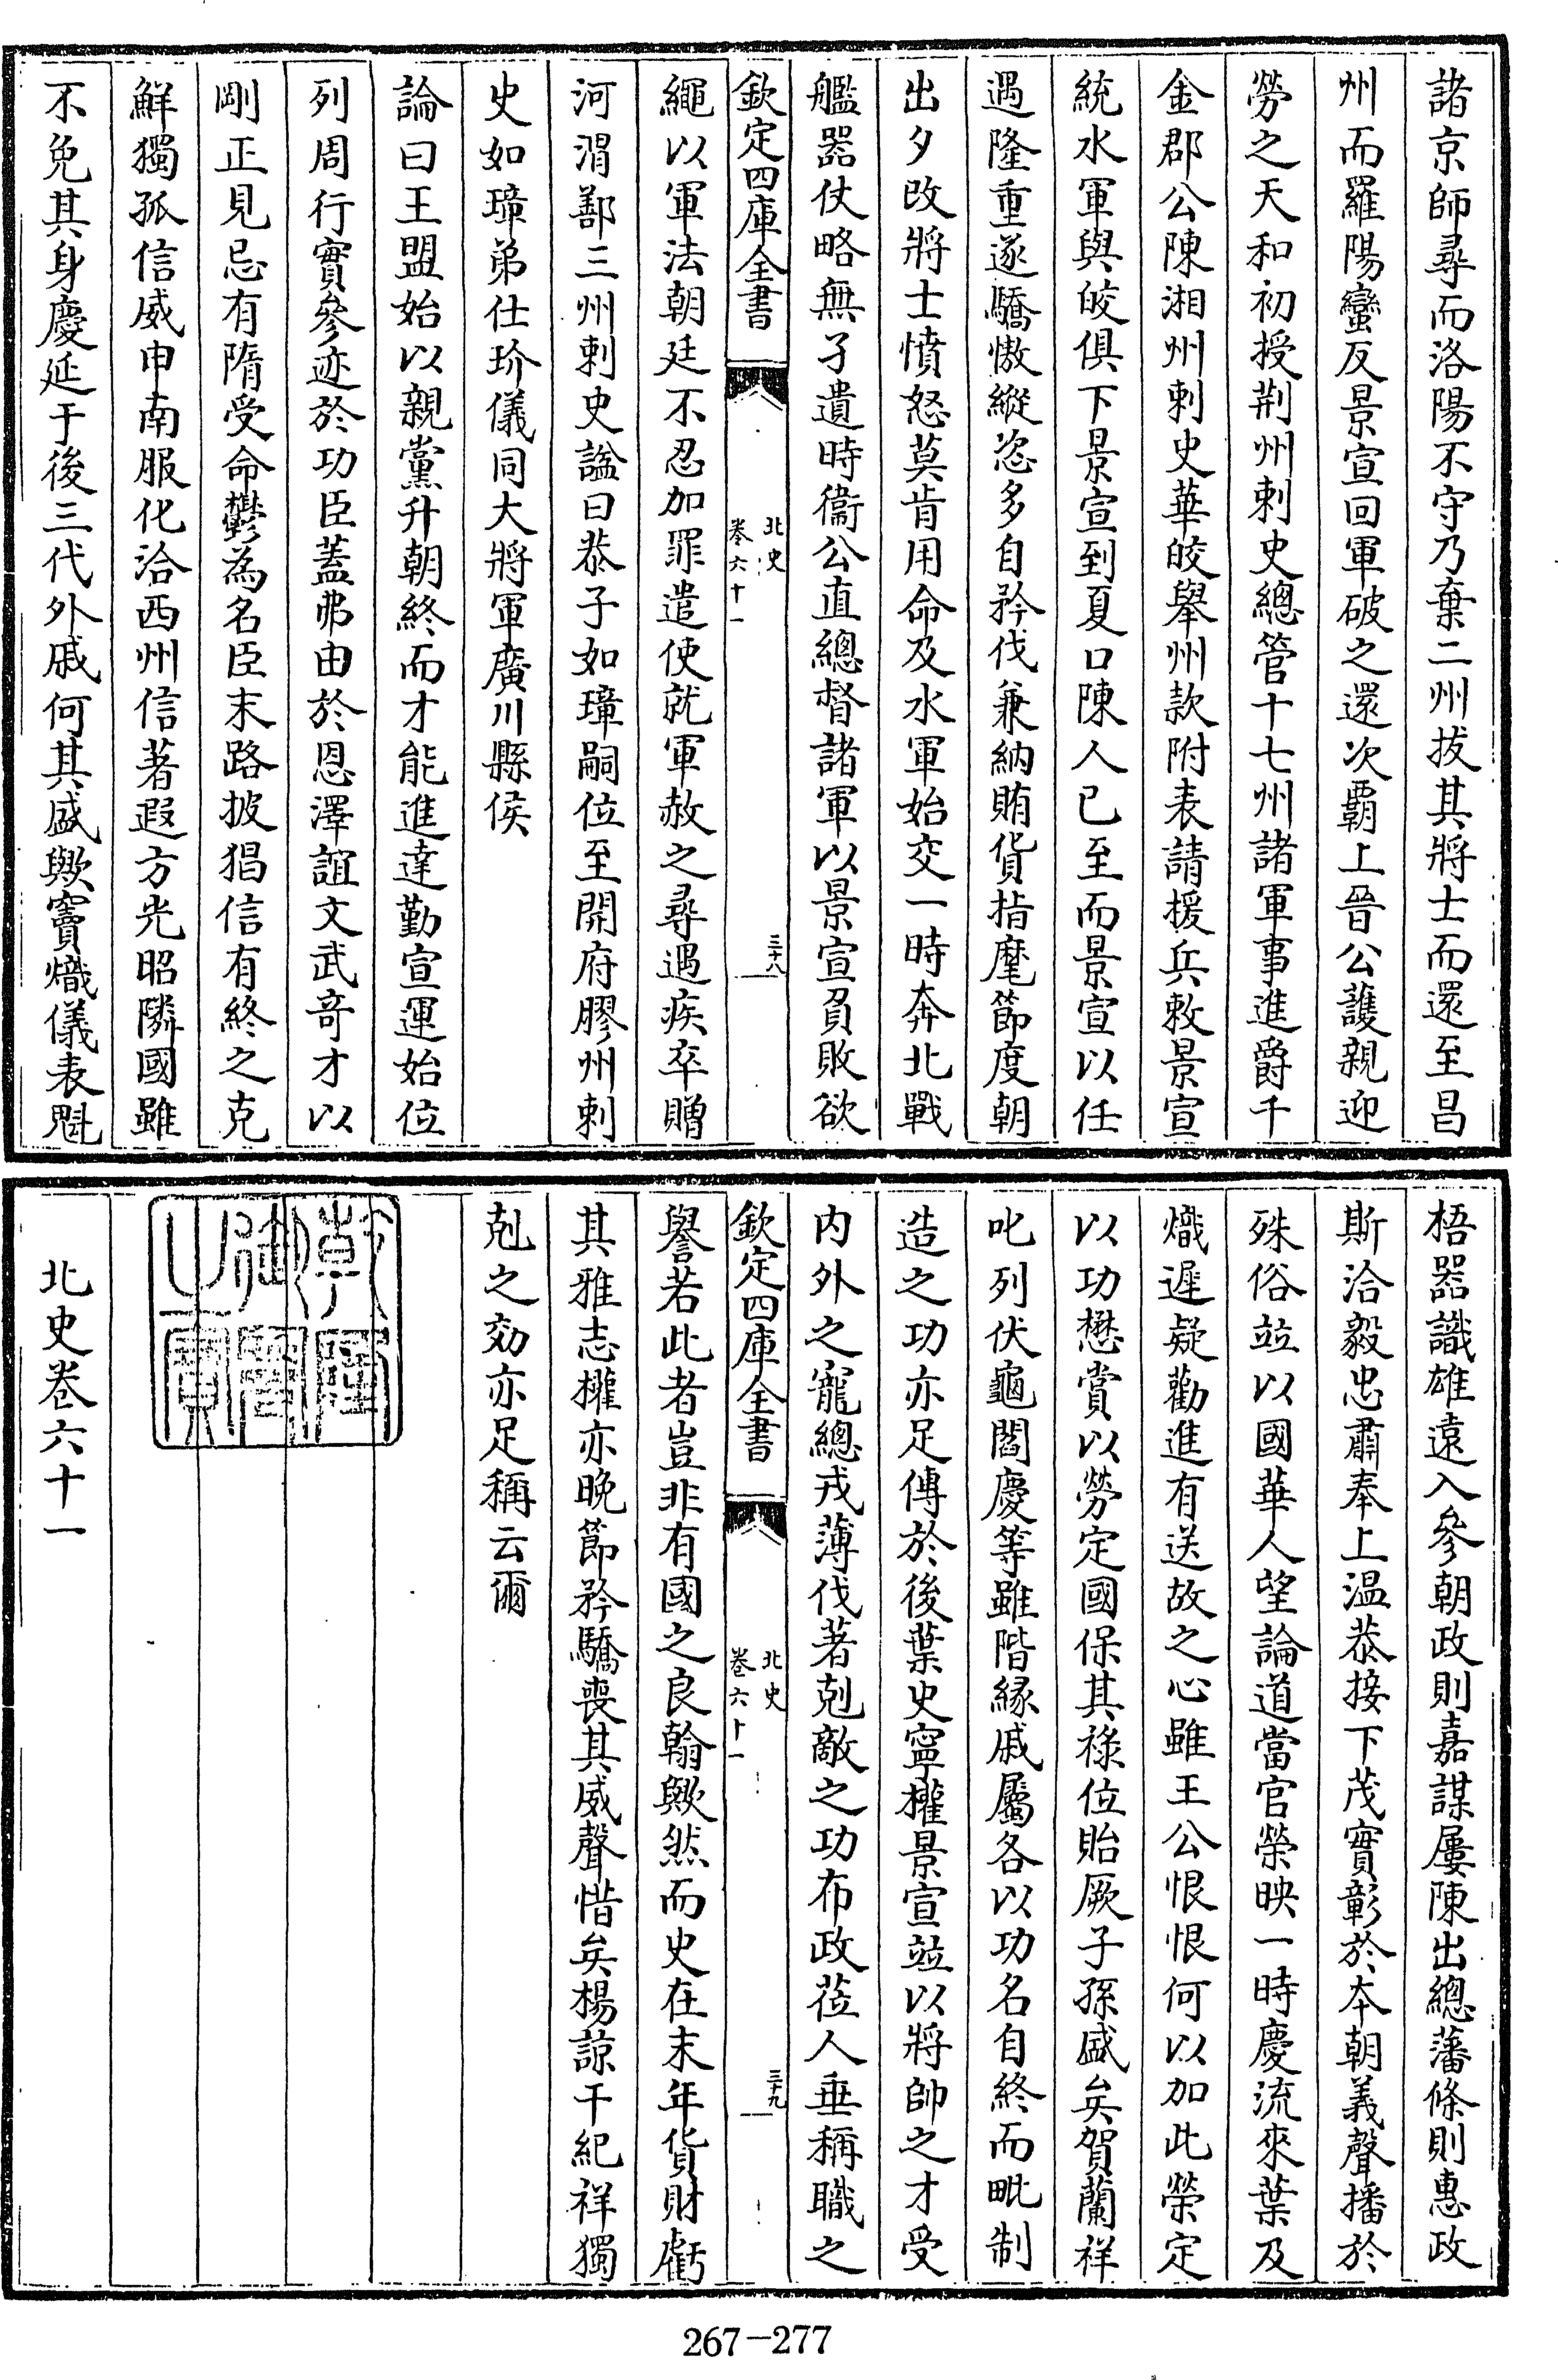 諸京師尋而洛陽不守乃棄二州拔其將士而還至昌
州而羅陽蠻反景宣回軍破之還次霸上晉公護親迎
勞之天和初授荆州刺史總管十七州諸軍事進爵千
金郡公陳湘州刺史華皎舉州款附表請援兵敕景宣
統水軍與皎俱下景宣到夏口陳人已至而景宣以任
遇隆重遂驕慠縱恣多自矜伐兼納賄貨指麾節度朝
出夕改將士憤怒莫肯用命及水軍始交一時奔北戰
艦器仗略無孑遺時衞公直總督諸軍以景宣負敗欲
欽定四庫全書
北史
卷六十一
三十八
繩以軍法朝廷不忍加罪遣使就軍赦之尋遇疾卒贈
河渭鄯三州刺史諡曰恭子如璋嗣位至開府膠州刺
史如璋弟仕玠儀同大將軍廣川縣侯
論曰王盟始以親黨升朝終而才能進達勤宣運始位
列周行實參迹於功臣蓋弗由於恩澤誼文武竒才以
剛正見忌有隋受命鬱為名臣末路披猖信有終之克
鮮獨孤信威申南服化洽西州信著遐方光昭隣國雖
不免其身慶延于後三代外戚何其盛歟竇熾儀表魁
梧器識雄遠入參朝政則嘉謀屢陳出總藩條則惠政
斯洽毅忠肅奉上温恭接下茂實彰於本朝義聲播於
殊俗竝以國華人望論道當官榮映一時慶流來葉及
熾遲疑勸進有送故之心雖王公恨恨何以加此榮定
以功懋賞以勞定國保其祿位貽厥子孫盛矣賀蘭祥
叱列伏龜閻慶等雖階緣戚屬各以功名自終而毗制
造之功亦足傳於後葉史寧權景宣竝以將帥之才受
内外之寵總戎薄伐著剋敵之功布政莅人垂稱職之
欽定四庫全書
北史
卷六十一
三十九
譽若此者豈非有國之良翰歟然而史在末年貨財虧
其雅志權亦晚節矜驕喪其威聲惜矣楊諒干紀祥獨
剋之効亦足稱云爾
乾隆御覽之寶
北史卷六十一
267-277